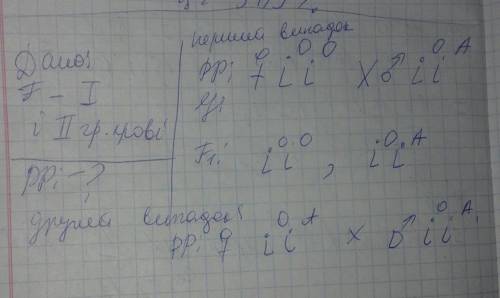 Дано:
F - I
і II гр. крові
PP: - ?
перший випадок
PP: ♀ i^O i^O X ♂ i^O i^A
G:
F1: i^O i^O, i^O i^A
другий випадок:
PP: ♀ i^O i^A x ♂ i^O i^A